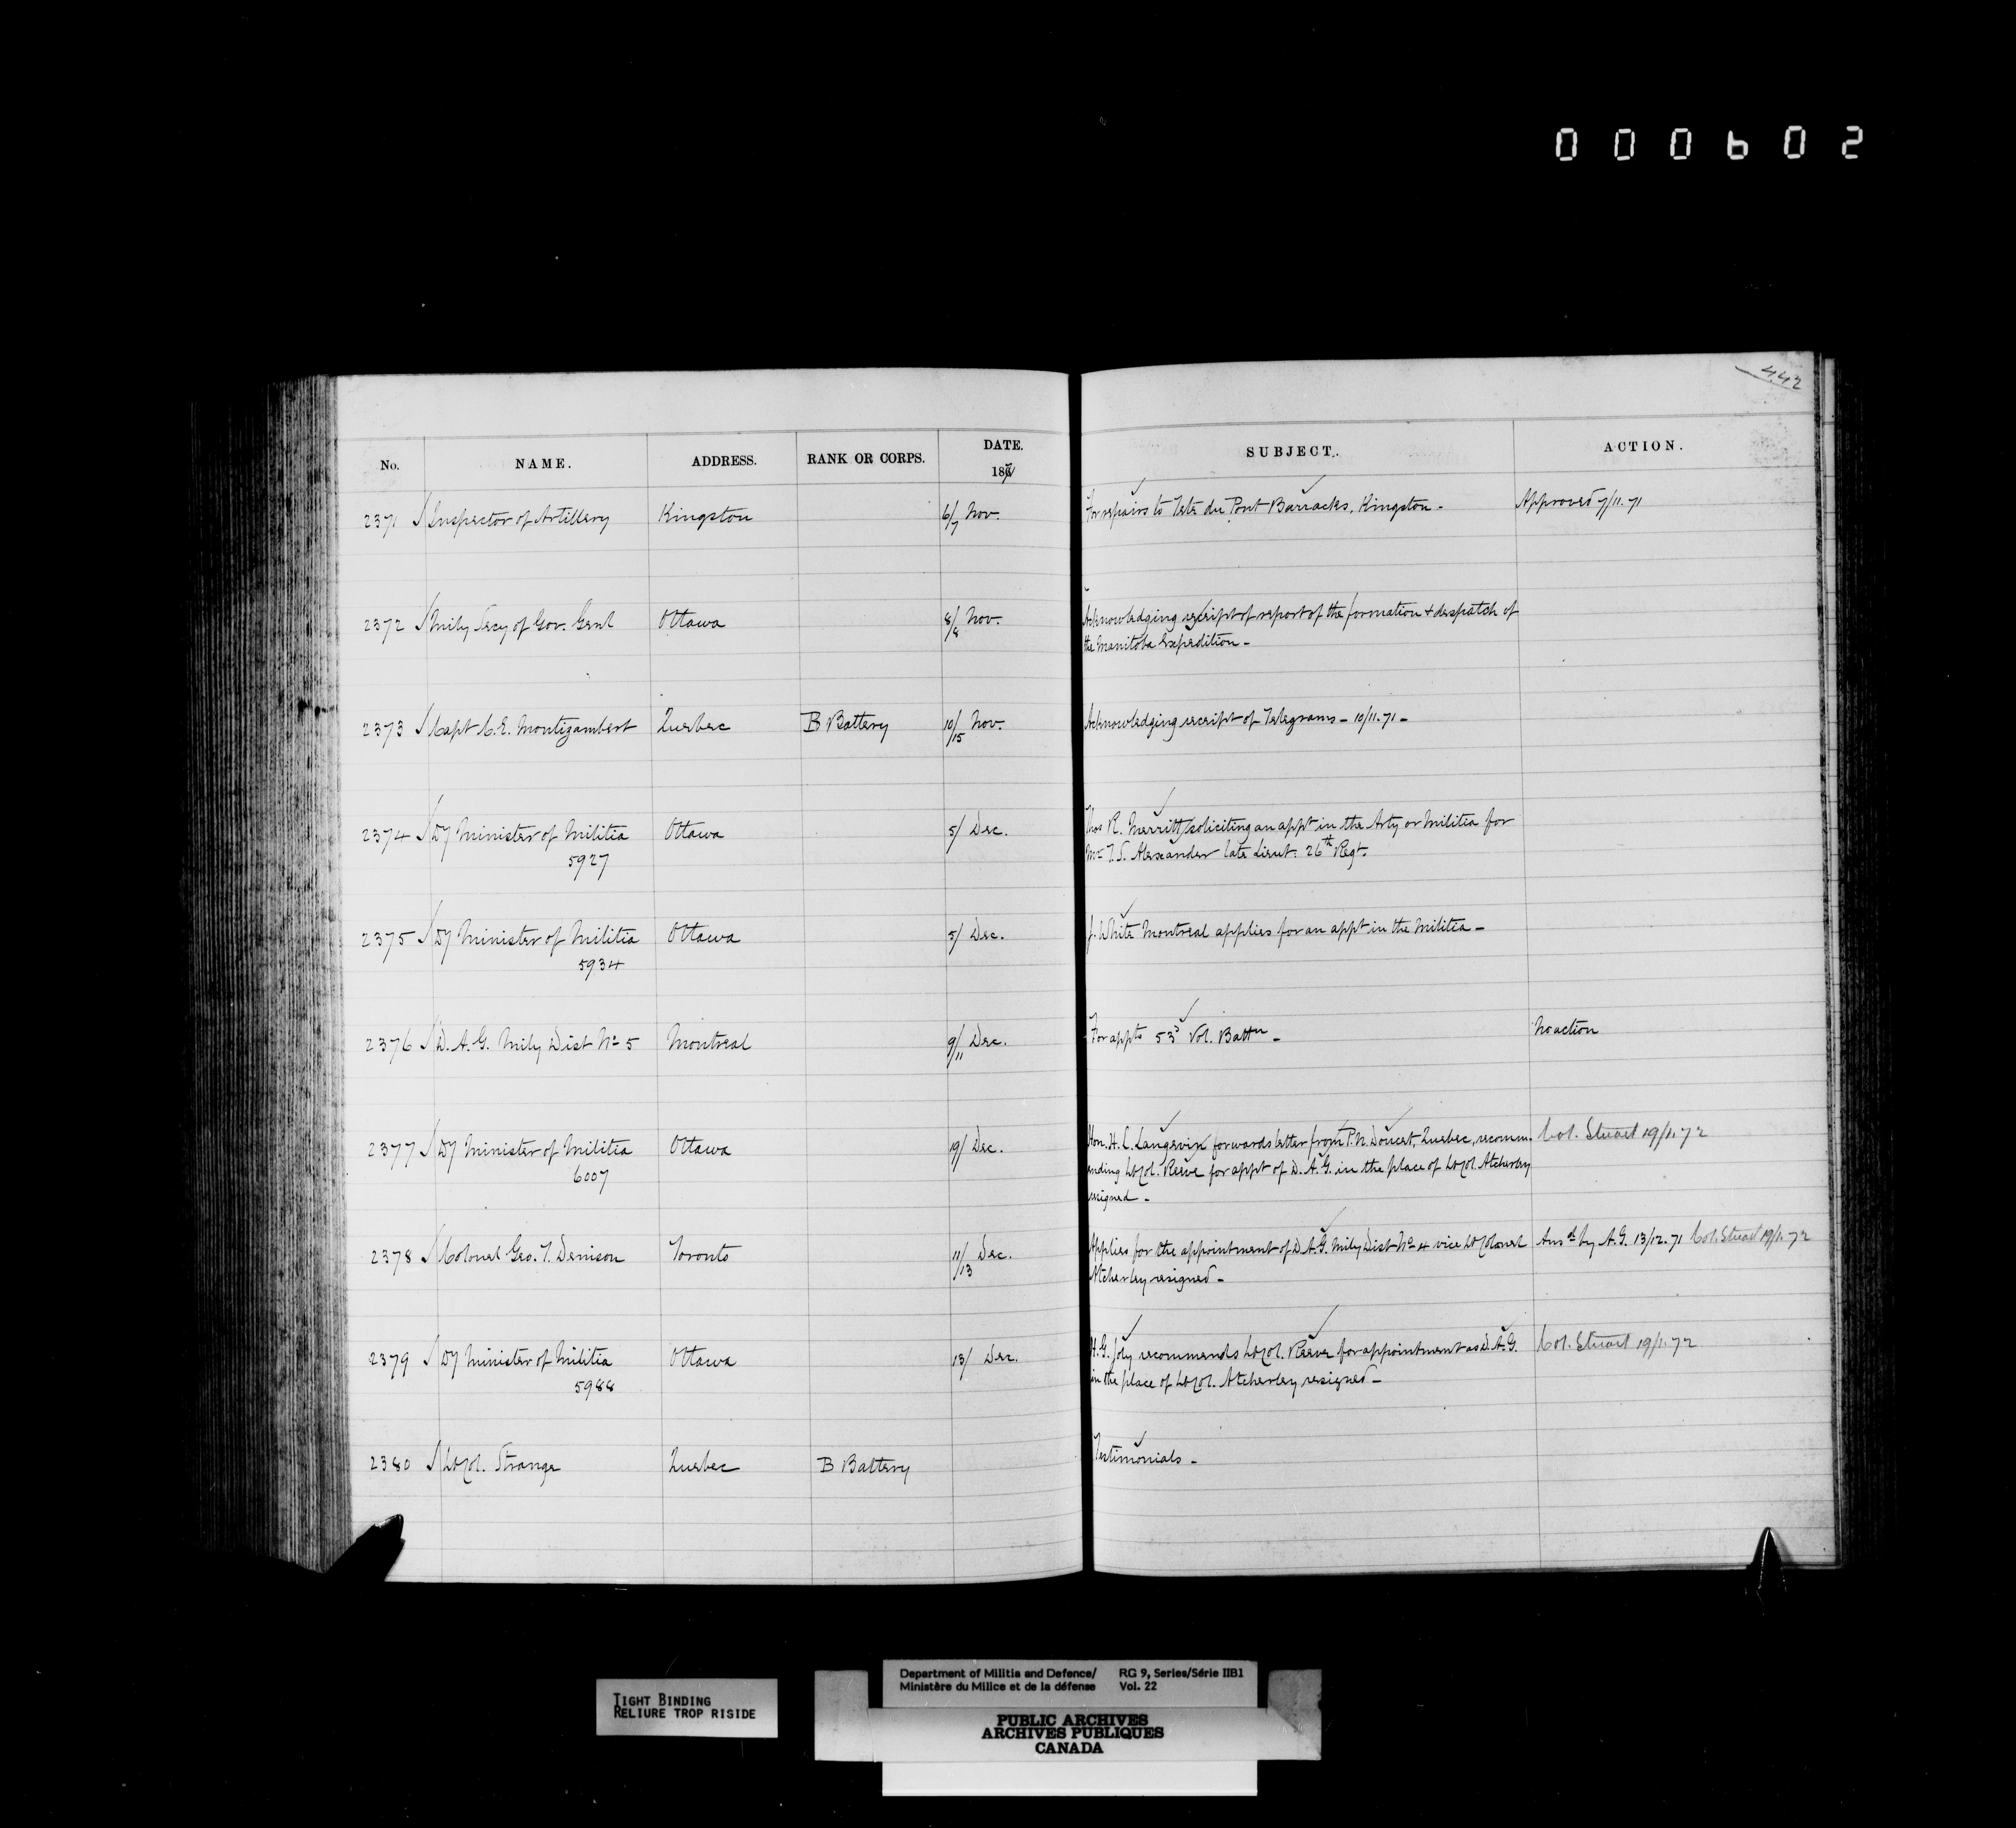 000602
442
No. NAME. ADDRESS. RANK OR CORPS. DATE. 1871 SUBJECT. ACTION.
2371 Inspector of Artillery Kingston 6/7 Nov. For repairs to Tete du Pont Barracks, Kingston - Approved 7/11.71
2372 Mily Secy of Gov. Genl Ottawa 8/8 Nov. Acknowledging receipt of report of the formation & despatch of
the Manitoba Expedition -
2373 Capt C.E. Montizambert Quebec B Battery 10/15 Nov. Acknowledging receipt of Telegrams - 10/11.71 -
2374 Dy Minister of Militia Ottawa 5/ Dec. Thos R. Merritt soliciting an appt in the Arty or Militia for
5927 Mr T.S. Alexander late Lieut. 26th Regt.
2375 Dy Minister of Militia Ottawa 5/ Dec. J. White Montreal applies for an appt in the Militia -
5934
2376 D.A.G. Mily Dist No 5 Montreal 9/11 Dec. For appts 53d Vol. Battn - No action
2377 Dy Minister of Militia Ottawa 19/ Dec. Hon. H.L. Langevin forwards letter from P.N. Doucet, Quebec, recomm- Col. Stuart 19/1.72
6007 ending Lt Col. Reeve for appt of D.A.G. in the place of Lt Col. Atcherley
resigned -
2378 Colonel Geo. T. Denison Toronto 11/13 Dec. Applies for the appointment of D.A.G. Mily Dist No 4 vice Lt Colonel Ansd by A.G. 13/12.71 Col. Stuart 19/1.72
Atcherley resigned -
2379 Dy Minister of Militia Ottawa 13/ Dec. H.G. Joly recommends Lt Col. Reeve for appointment as D.A.G. Col. Stuart 19/1.72
5988 in the place of Lt Col. Atcherley resigned -
2380 Lt Col. Strange Quebec B Battery Testimonials -
TIGHT BINDING
RELIURE TROP RISIDE
Department of Militia and Defence/ RG 9, Series/Série IIB1
Ministère du Milice et de la défense Vol. 22
PUBLIC ARCHIVES
ARCHIVES PUBLIQUES
CANADA